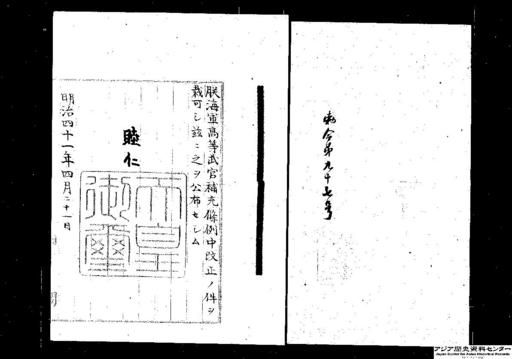 勅令第九十七号
朕海軍高等武官補充條例中改正ノ件ヲ
裁可シ茲ニ之ヲ公布セシム
睦仁
天皇
御璽
明治四十一年四月二十一日
アジア歴史資料センター
Japan Center for Asian Historical Records